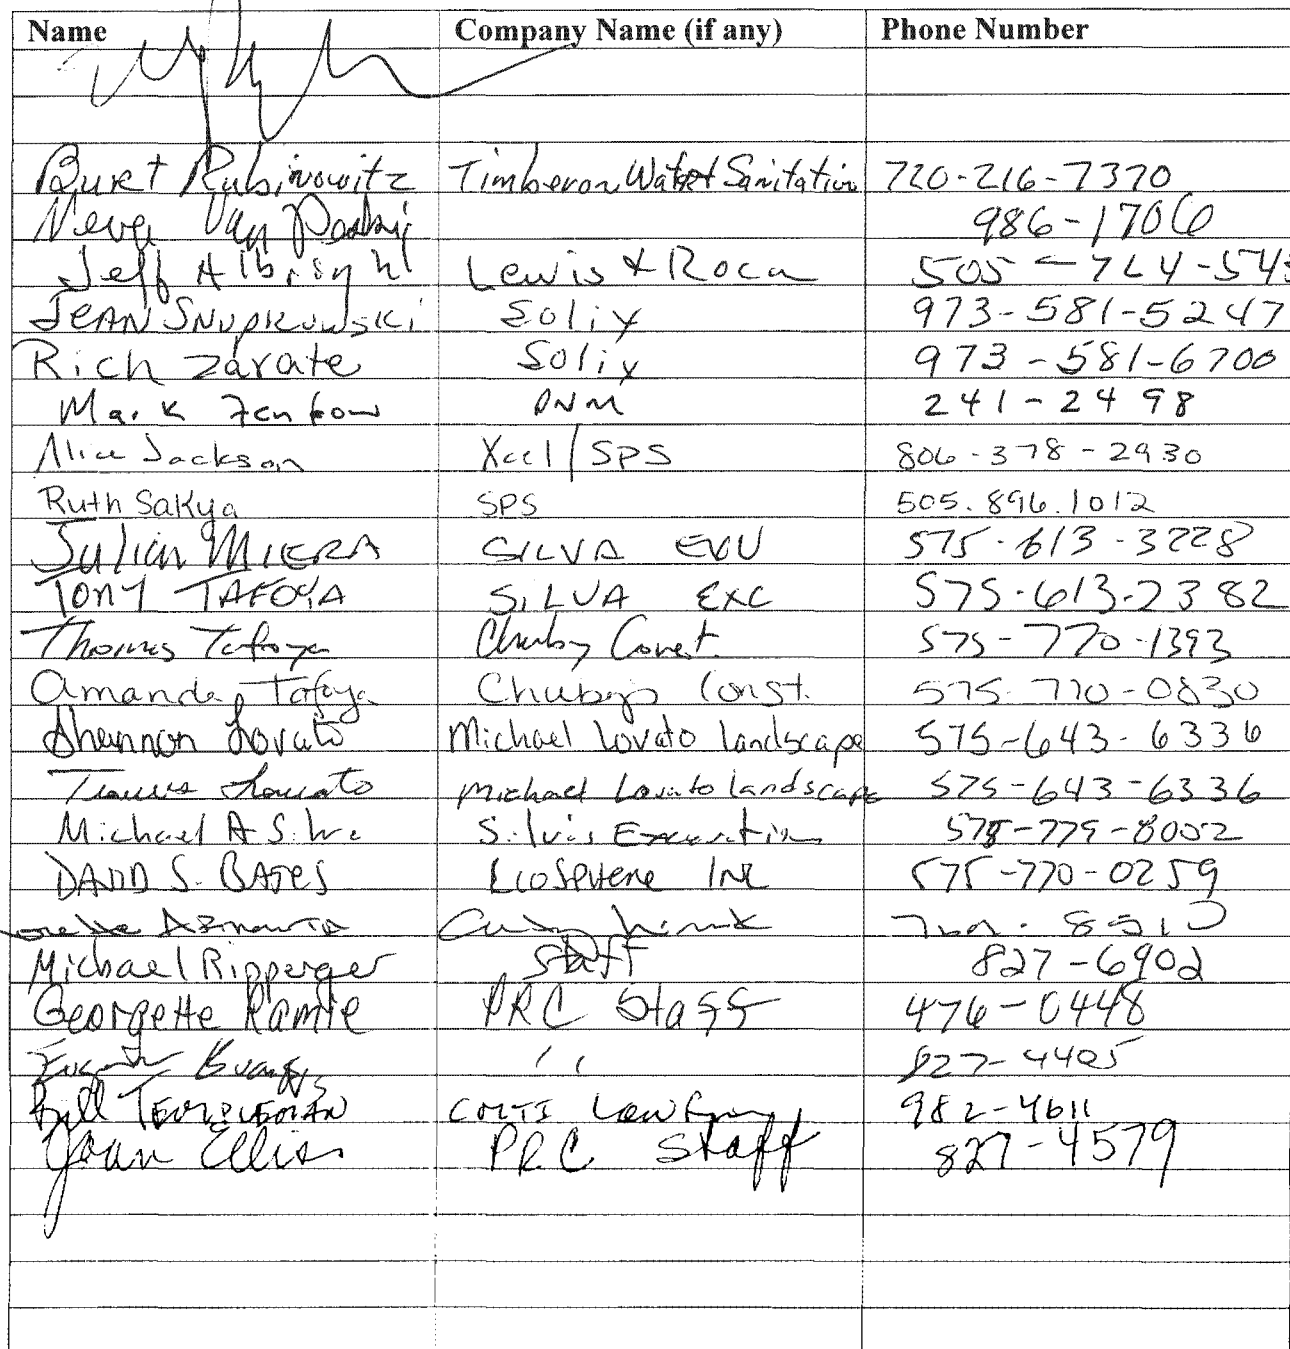 Name Company Name (if any) Phone Number
Burt Rubinowitz Timberon Water Sanitation 720-216-7370
Neva Van 986-1706
Jeff Albright Lewis & Roca 505-764-54
JEAN Solix 973-581-5247
Rich Zarate Solix 973-581-6700
Mark Fenton PNM 241-2498
Alice Jackson Xcel/SPS 806-378-2930
Ruth Sakya SPS 505.896.1012
Julian MIERA SILVA 575-613-3228
TONY TAFOYA SILVA EXC 575-613-2382
Thomas Tafoya Const. 575-770-1393
Amanda Tafoya Const. 575-770-0830
Shannon Lovato Michael Lovato landscape 575-643-6336
Lovato Michael Lovato landscape 575-643-6336
Michael A 8002
DAVID S. BATES Inc 575-770-0259
Michael Ripperger Staff 827-6902
Georgette Ramie PRC Staff 476-0448
827-4405
Bill TEMPLEMAN Law Firm 982-4611
Joan Ellis PRC Staff 827-4579